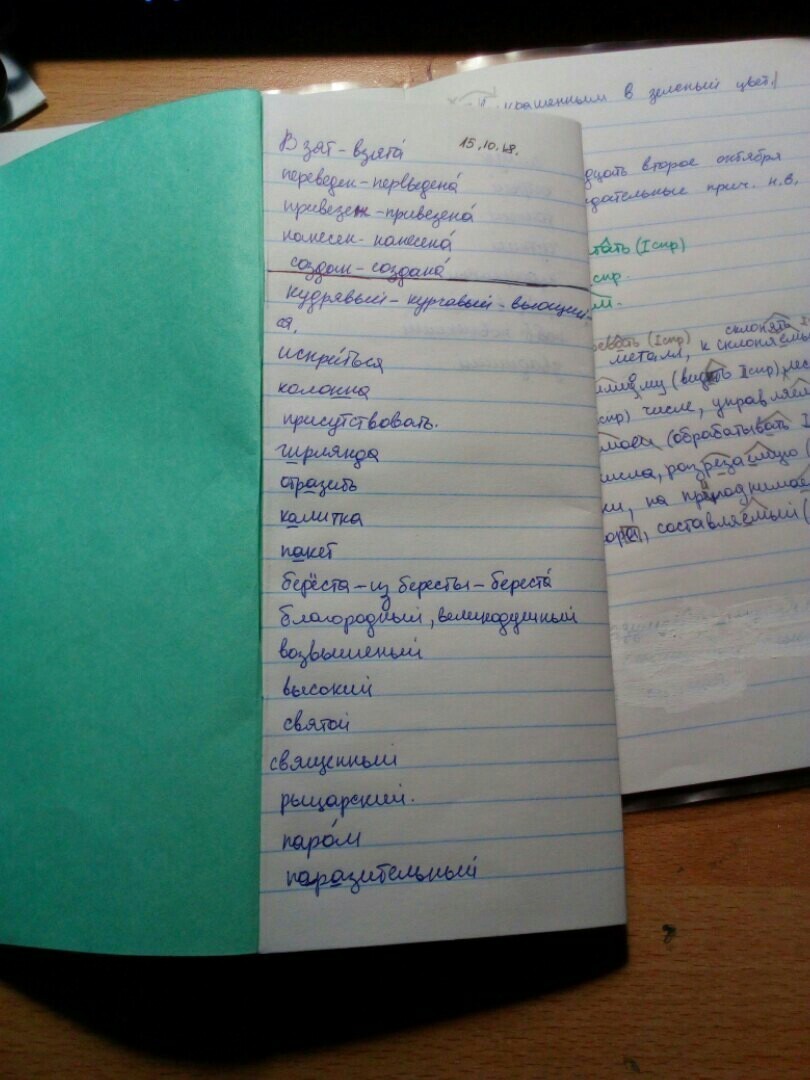 Взят - взята́
15.10.18.
переведен - первыдена́
привезен - привезена́
нанесен - нанесена́
создан - создана́
кудрявый - курчавый - вьющий-
ся.
искри́ться
колонна
присутствовать.
гирлянда
отразить
калитка
пакет
берёста - из бересты - береста́
благородный, великодушный
возвышеный
высокий
святой
священный
рыцарский.
паро́м
паразительный
в зеленый цвет.
второе октября
прич. н.в.
(I спр)
спр.
(I спр) склонять
металл, к склоняем
(видеть
спр) числе, управляем
(обрабатывать I
разрезаемую
на приподнимае
составляемый (